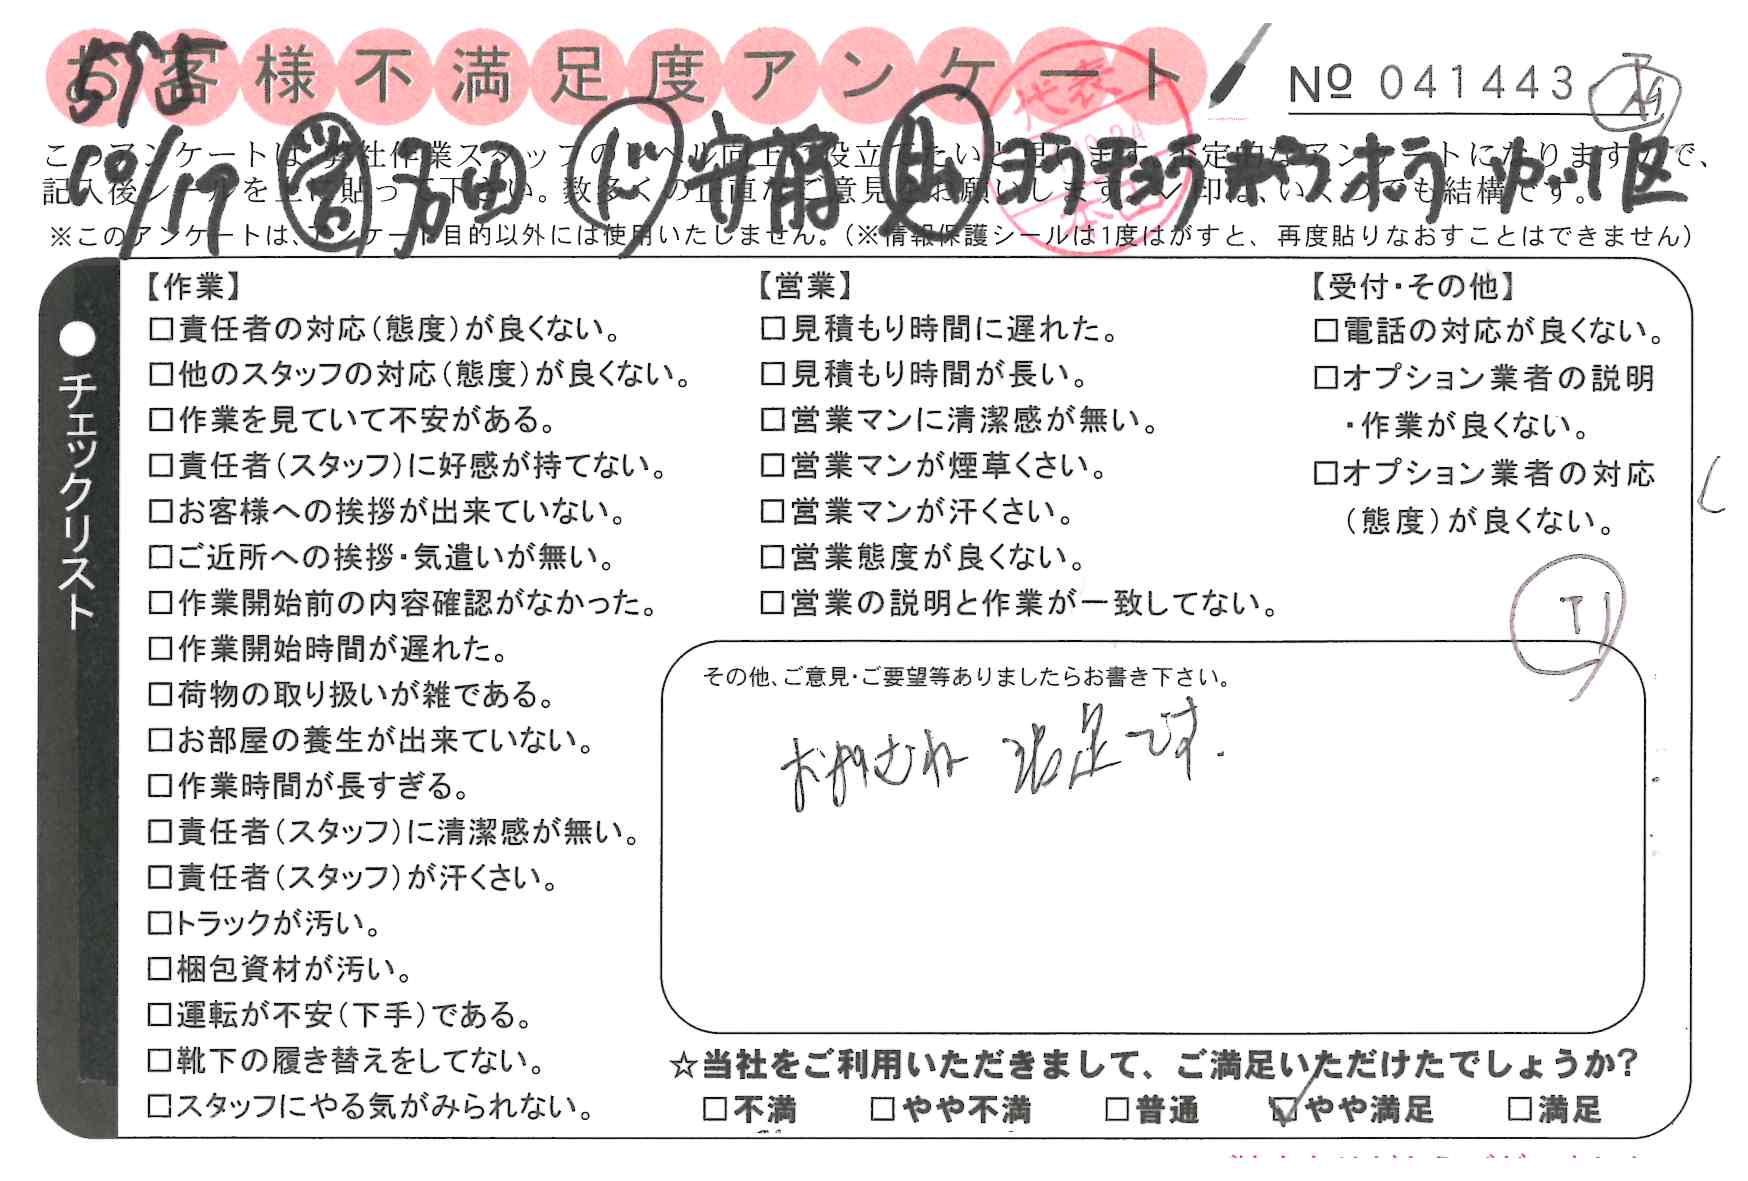 お客様不満足度アンケート
№ 041443
10/17 営 万田 ド 守勝
このアンケートは、弊社作業スタッフのレベル向上に役立てたいと思います。不定期なアンケートになりますので、
記入後シールを上に貼って下さい。数多くの正直なご意見をお願いします。レ印は、いくつでも結構です。
※このアンケートは、アンケート目的以外には使用いたしません。(※情報保護シールは1度はがすと、再度貼りなおすことはできません)
●チェックリスト
【作業】
□責任者の対応(態度)が良くない。
□他のスタッフの対応(態度)が良くない。
□作業を見ていて不安がある。
□責任者(スタッフ)に好感が持てない。
□お客様への挨拶が出来ていない。
□ご近所への挨拶・気遣いが無い。
□作業開始前の内容確認がなかった。
□作業開始時間が遅れた。
□荷物の取り扱いが雑である。
□お部屋の養生が出来ていない。
□作業時間が長すぎる。
□責任者(スタッフ)に清潔感が無い。
□責任者(スタッフ)が汗くさい。
□トラックが汚い。
□梱包資材が汚い。
□運転が不安(下手)である。
□靴下の履き替えをしてない。
□スタッフにやる気がみられない。
【営業】
□見積もり時間に遅れた。
□見積もり時間が長い。
□営業マンに清潔感が無い。
□営業マンが煙草くさい。
□営業マンが汗くさい。
□営業態度が良くない。
□営業の説明と作業が一致してない。
【受付・その他】
□電話の対応が良くない。
□オプション業者の説明
・作業が良くない。
□オプション業者の対応
(態度)が良くない。
その他、ご意見・ご要望等ありましたらお書き下さい。
おおむね 満足です.
☆当社をご利用いただきまして、ご満足いただけたでしょうか?
□不満 □やや不満 □普通 ☑やや満足 □満足